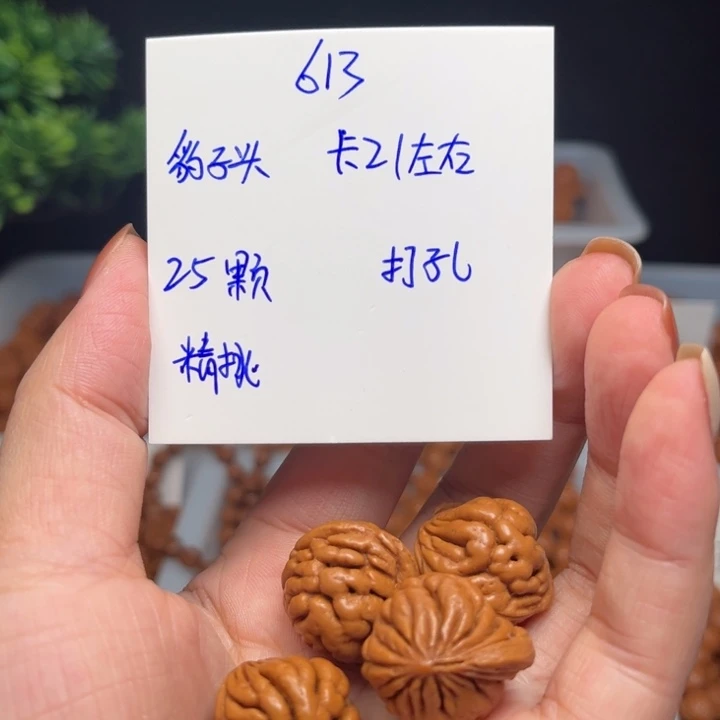 613
豹子头 卡21左右
25颗 打孔
精挑